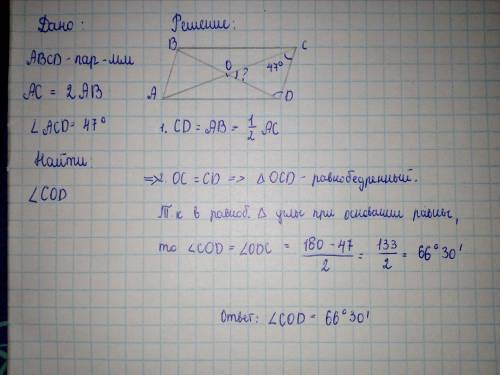 Дано:
Решение:
ABCD - пар-мм
AC = 2AB
∠ACD = 47°
Найти:
∠COD
B
C
O
47°
1?
A
D
1. CD = AB = 1/2 AC
=> 2. OC = CD => △OCD - равнобедренный.
Т к в равноб. △ углы при основании равны,
то ∠COD = ∠ODC = 180 - 47 / 2 = 133 / 2 = 66° 30'
Ответ: ∠COD = 66° 30'